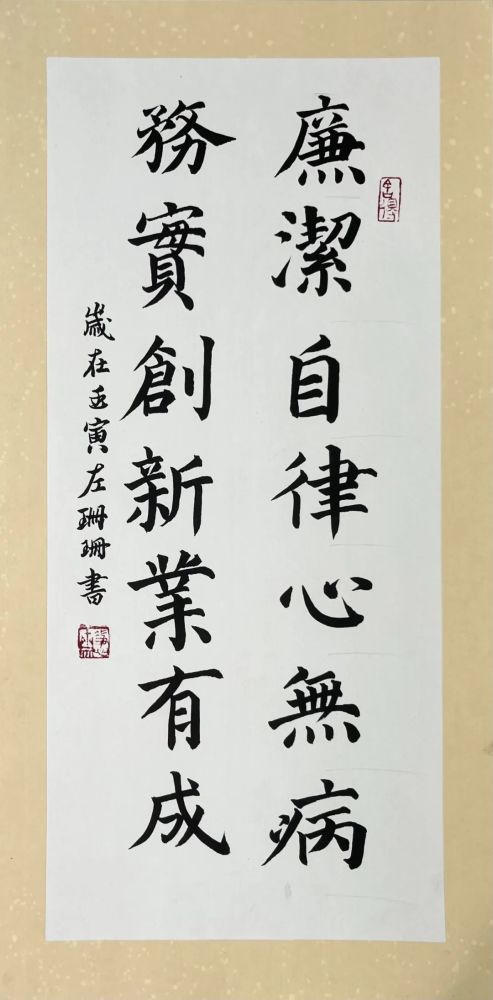 廉潔自律心無病
務實創新業有成
歲在壬寅左珊珊書